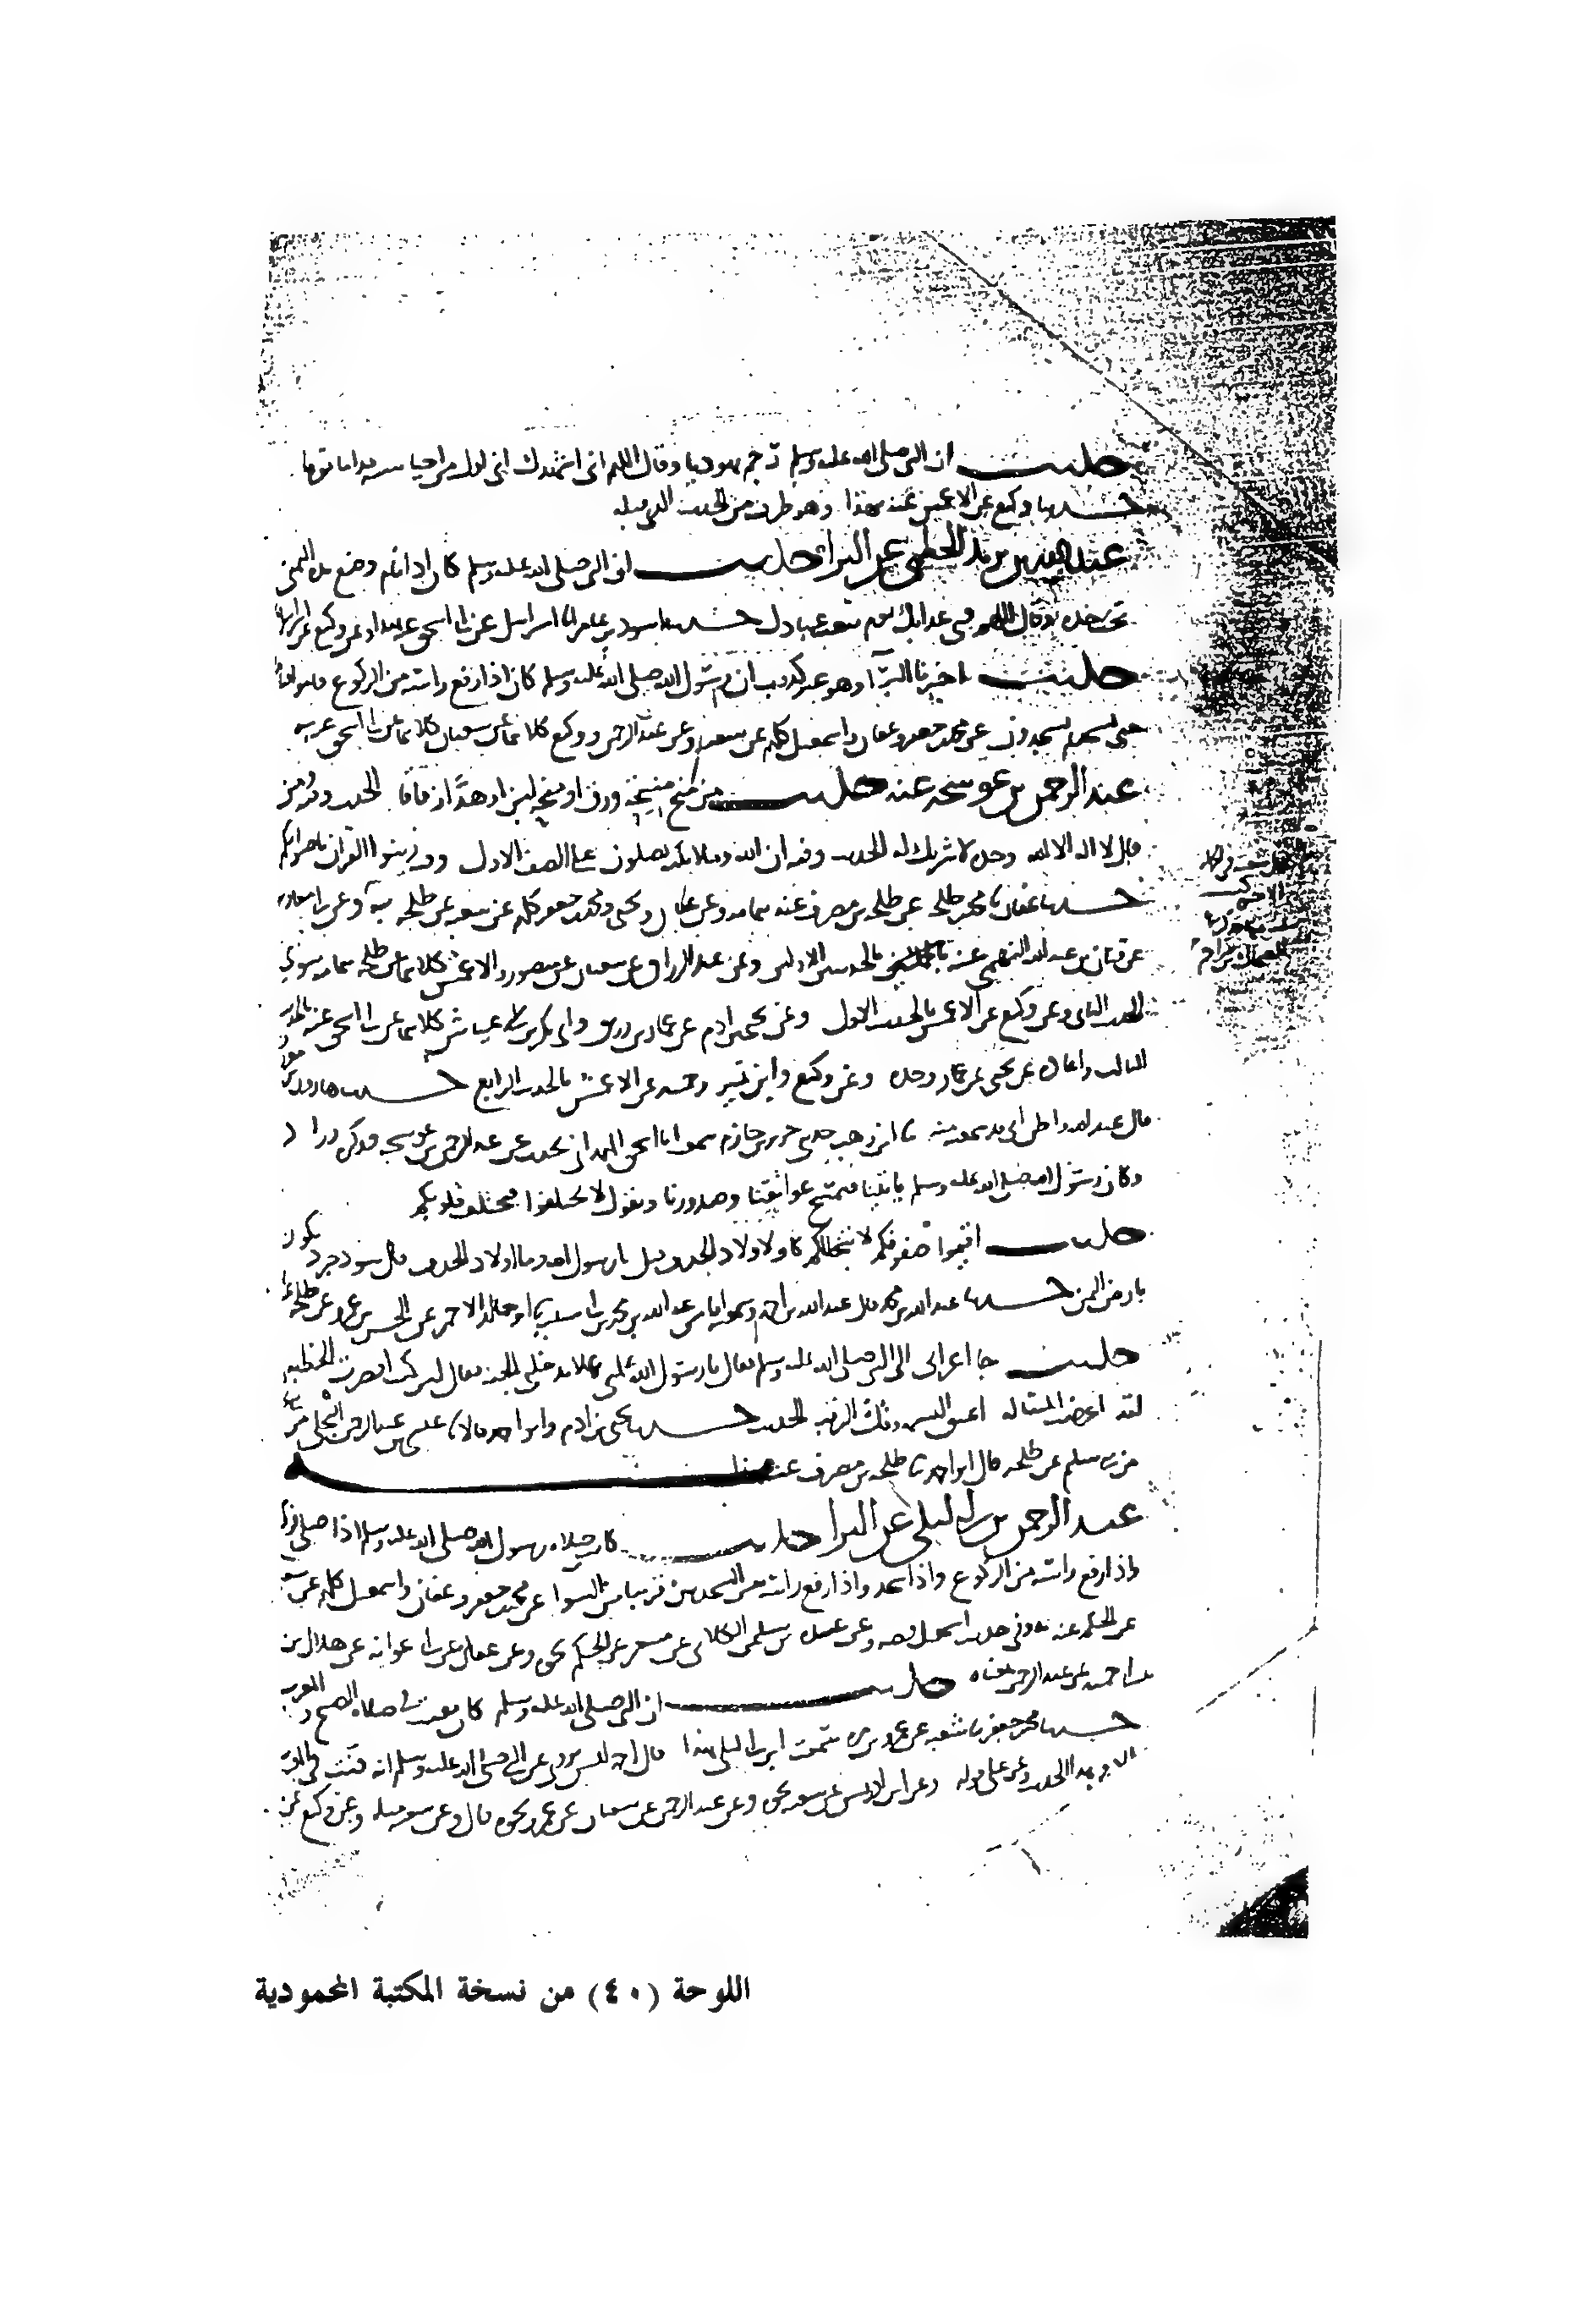 حديث ان النبي صلى الله عليه وسلم رجم يهوديا وقال اللهم اني اشهدك اني اول من احيا سنة قد اماتوها
حدثنا وكيع عن الاعمش عنه بهذا وهو طرف من الحديث الذي قبله
عبد الله بن يزيد الخطمي عن البراء حديث ان النبي صلى الله عليه وسلم كان اذا نام وضع يده اليمنى
تحت خده وقال اللهم قني عذابك يوم تبعث عبادك حدثنا اسود بن عامر انا اسرائيل عن ابي اسحق عنه بهذا وعن وكيع عن اسرائيل
حديث اخبرنا البراء وهو غير كذوب ان رسول الله صلى الله عليه وسلم كان اذا رفع راسه من الركوع قاموا قياما
حتى يسجد ثم يسجدون عن محمد بن جعفر وعفان واسمعيل كلهم عن شعبة وعن عبد الرحمن ووكيع كلاهما عن سفيان كلاهما عن ابي اسحق عنه به
عبد الرحمن بن عوسجه عنه حديث من منح منيحة ورق او منيحة لبن او هدى زقاقا الحديث وفيه من
قال لا اله الا الله وحده لا شريك له الحديث وفيه ان الله وملائكته يصلون على الصف الاول وفيه زينوا القران باصواتكم
حدثنا عفان نا محمد بن طلحة عن طلحة بن مصرف عنه بتمامه وعن عفان ويحيى ومحمد بن جعفر كلهم عن شعبة عن طلحة به وعن ابي معاوية
عن قنان بن عبد الله النهمي عنه بالحديثين الاولين وعن عبد الرزاق عن سفيان عن منصور والاعمش كلاهما عن طلحة بتمامه سوى
الحديث الثاني وعن وكيع عن الاعمش بالحديث الاول وعن يحيى بن ادم عن عمار بن رزيق وابي بكر بن عياش كلاهما عن ابي اسحق عنه بالحديث
الثالث وعن يحيى عن عمار وحده وعن وكيع وابن نمير عن الاعمش بالحديث الرابع حدثنا هارون بن معروف
قال عبد الله واظن اني قد سمعته منه نا ابن وهب حدثني جرير بن حازم سمعت ابا اسحق الهمداني يحدث عن عبد الرحمن بن عوسجة فذكره وزاد
وكان رسول الله صلى الله عليه وسلم ياتينا فيمسح عواتقنا وصدورنا ويقول لا تختلفوا فتختلف قلوبكم
حديث اقيموا صفوفكم لا يتخللكم كاولاد الحذف قيل يا رسول الله وما اولاد الحذف قال سود جرد تكون
بارض اليمن حدثنا عبد الله بن محمد قال عبد الله بن احمد وسمعته انا من عبد الله بن محمد بن ابي شيبة نا ابو خالد الاحمر عن الحسن بن عمرو عن طلحة
حديث جا اعرابي الى النبي صلى الله عليه وسلم فقال يا رسول الله علمني عملا يدخلني الجنة فقال لئن كنت اقصرت الخطبة
لقد اعرضت المسئلة اعتق النسمة وفك الرقبة الحديث حدثنا يحيى بن ادم وابو احمد قالا نا عيسى بن عبد الرحمن البجلي من
من بني سليم عن طلحة قال ابو احمد نا طلحة بن مصرف عنه بهذا
عبد الرحمن بن ابي ليلى عن البراء حديث كانت صلاة رسول الله صلى الله عليه وسلم اذا صلى فركع
واذا رفع راسه من الركوع واذا سجد واذا رفع راسه من السجدتين قريبا من السوا عن محمد بن جعفر وعفان واسمعيل كلهم عن شعبة
عن الحكم عنه به وفي حديث اسمعيل قصة وعن عبيدة عن مسعر عن الحكم نحوه وعن عفان عن ابي عوانة عن هلال بن
ابي حميد عن عبد الرحمن بمعناه حديث ان النبي صلى الله عليه وسلم كان يقنت في صلاة الصبح والمغرب
حدثنا محمد بن جعفر نا شعبة عن عمرو بن مرة سمعت ابن ابي ليلى بهذا قال احمد ليس يروى عن النبي صلى الله عليه وسلم انه قنت في المغرب
الا في هذا الحديث وعن علي قوله وعن ابن ادريس عن شعبة نحوه وعن عبد الرحمن عن سفيان عن عمرو نحوه قال وعن شعبة مثله وعن وكيع عن
اللوحة (٤٠) من نسخة المكتبة المحمودية